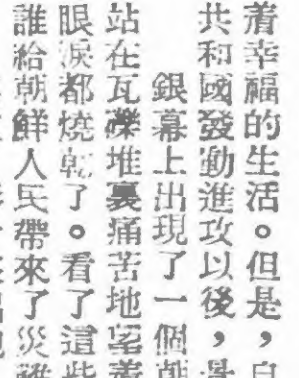 着幸福的生活。但是,
共和國發動進攻以後,
銀幕上出現了一個朝
站在瓦礫堆裏痛苦地望着
眼淚都燒乾了。看了這些
誰給朝鮮人民帶來了災難